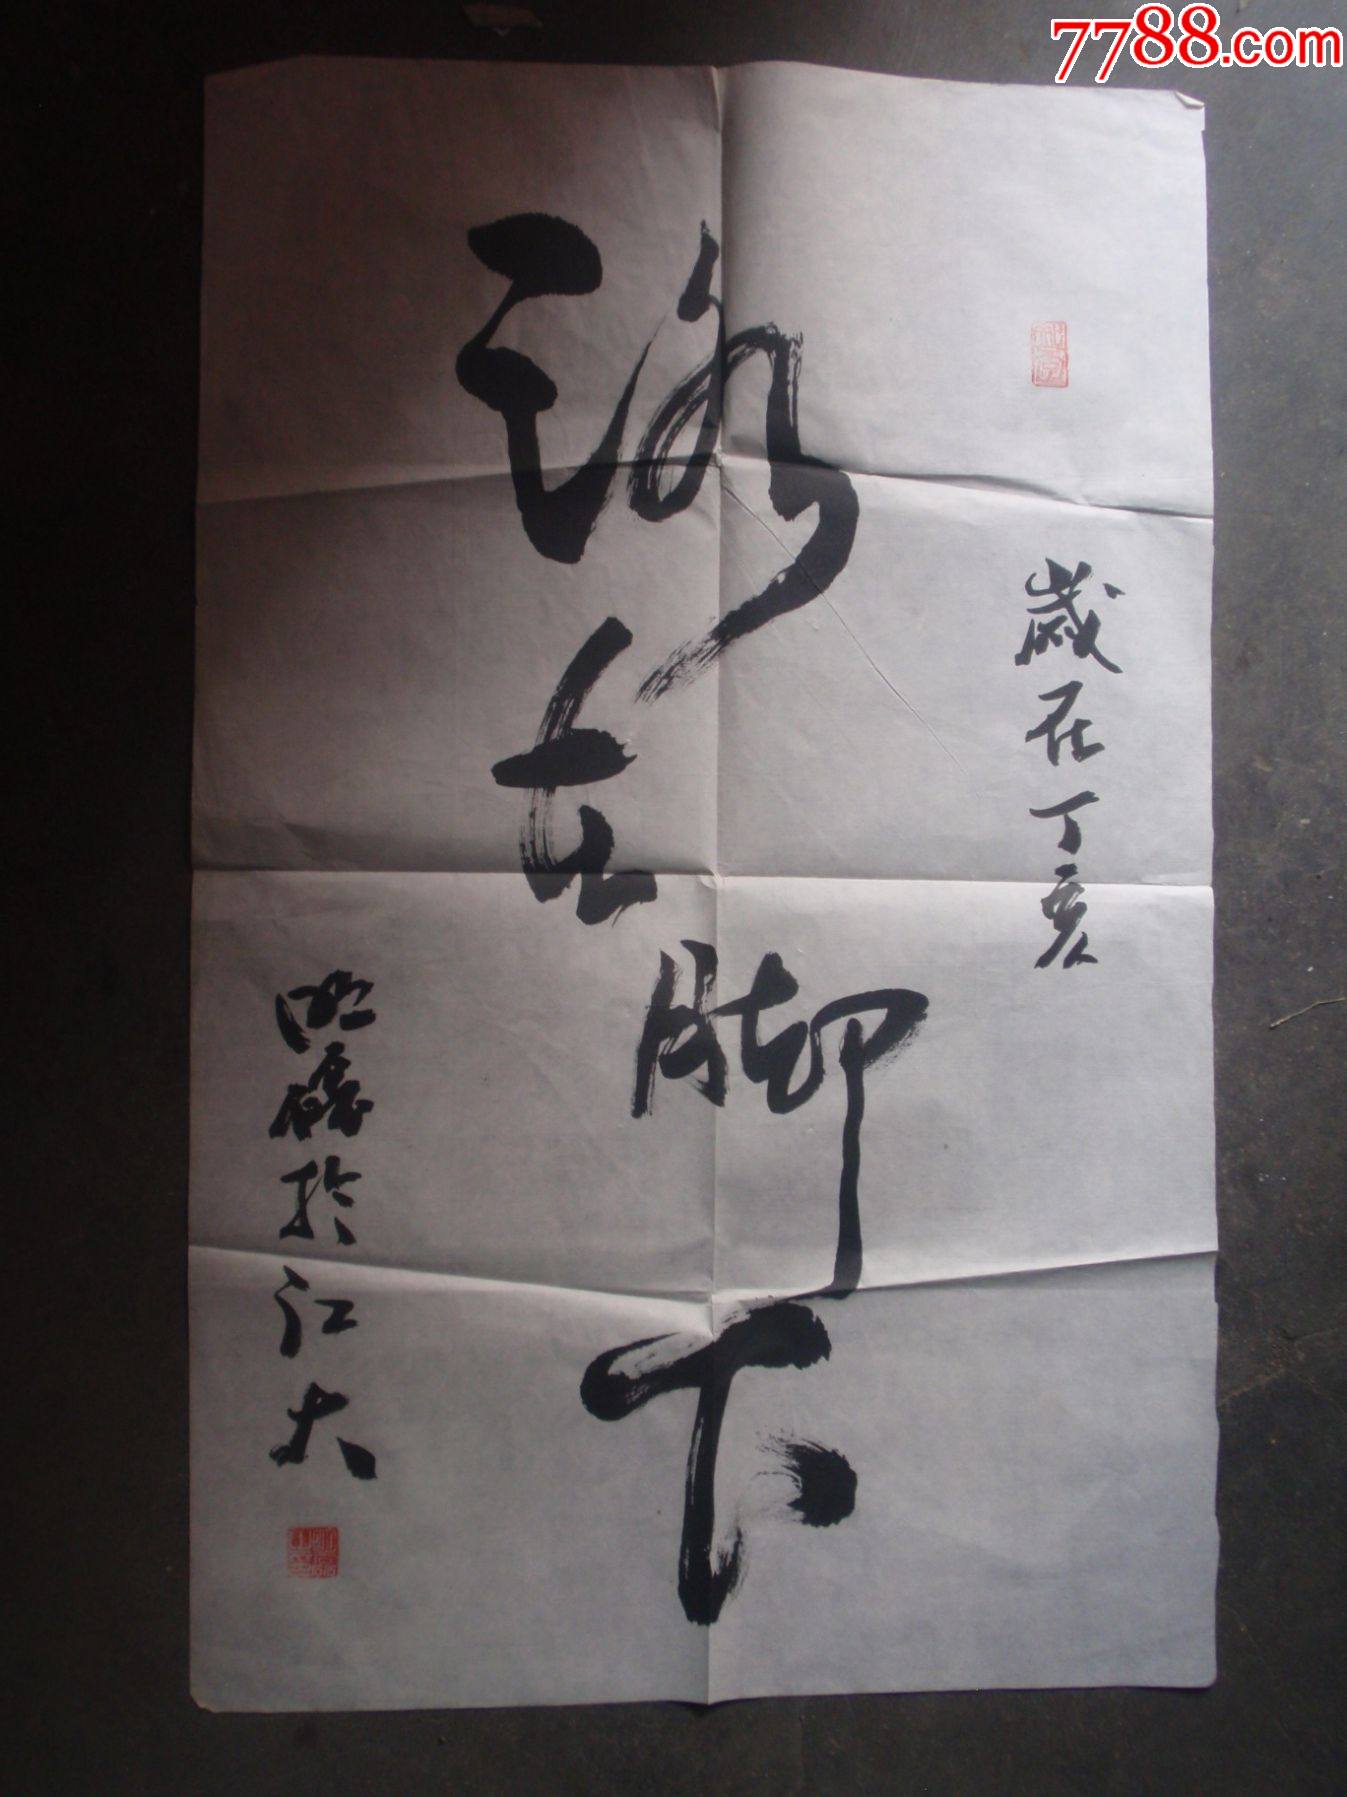 7788.com
歲在丁亥
路在脚下
於江大